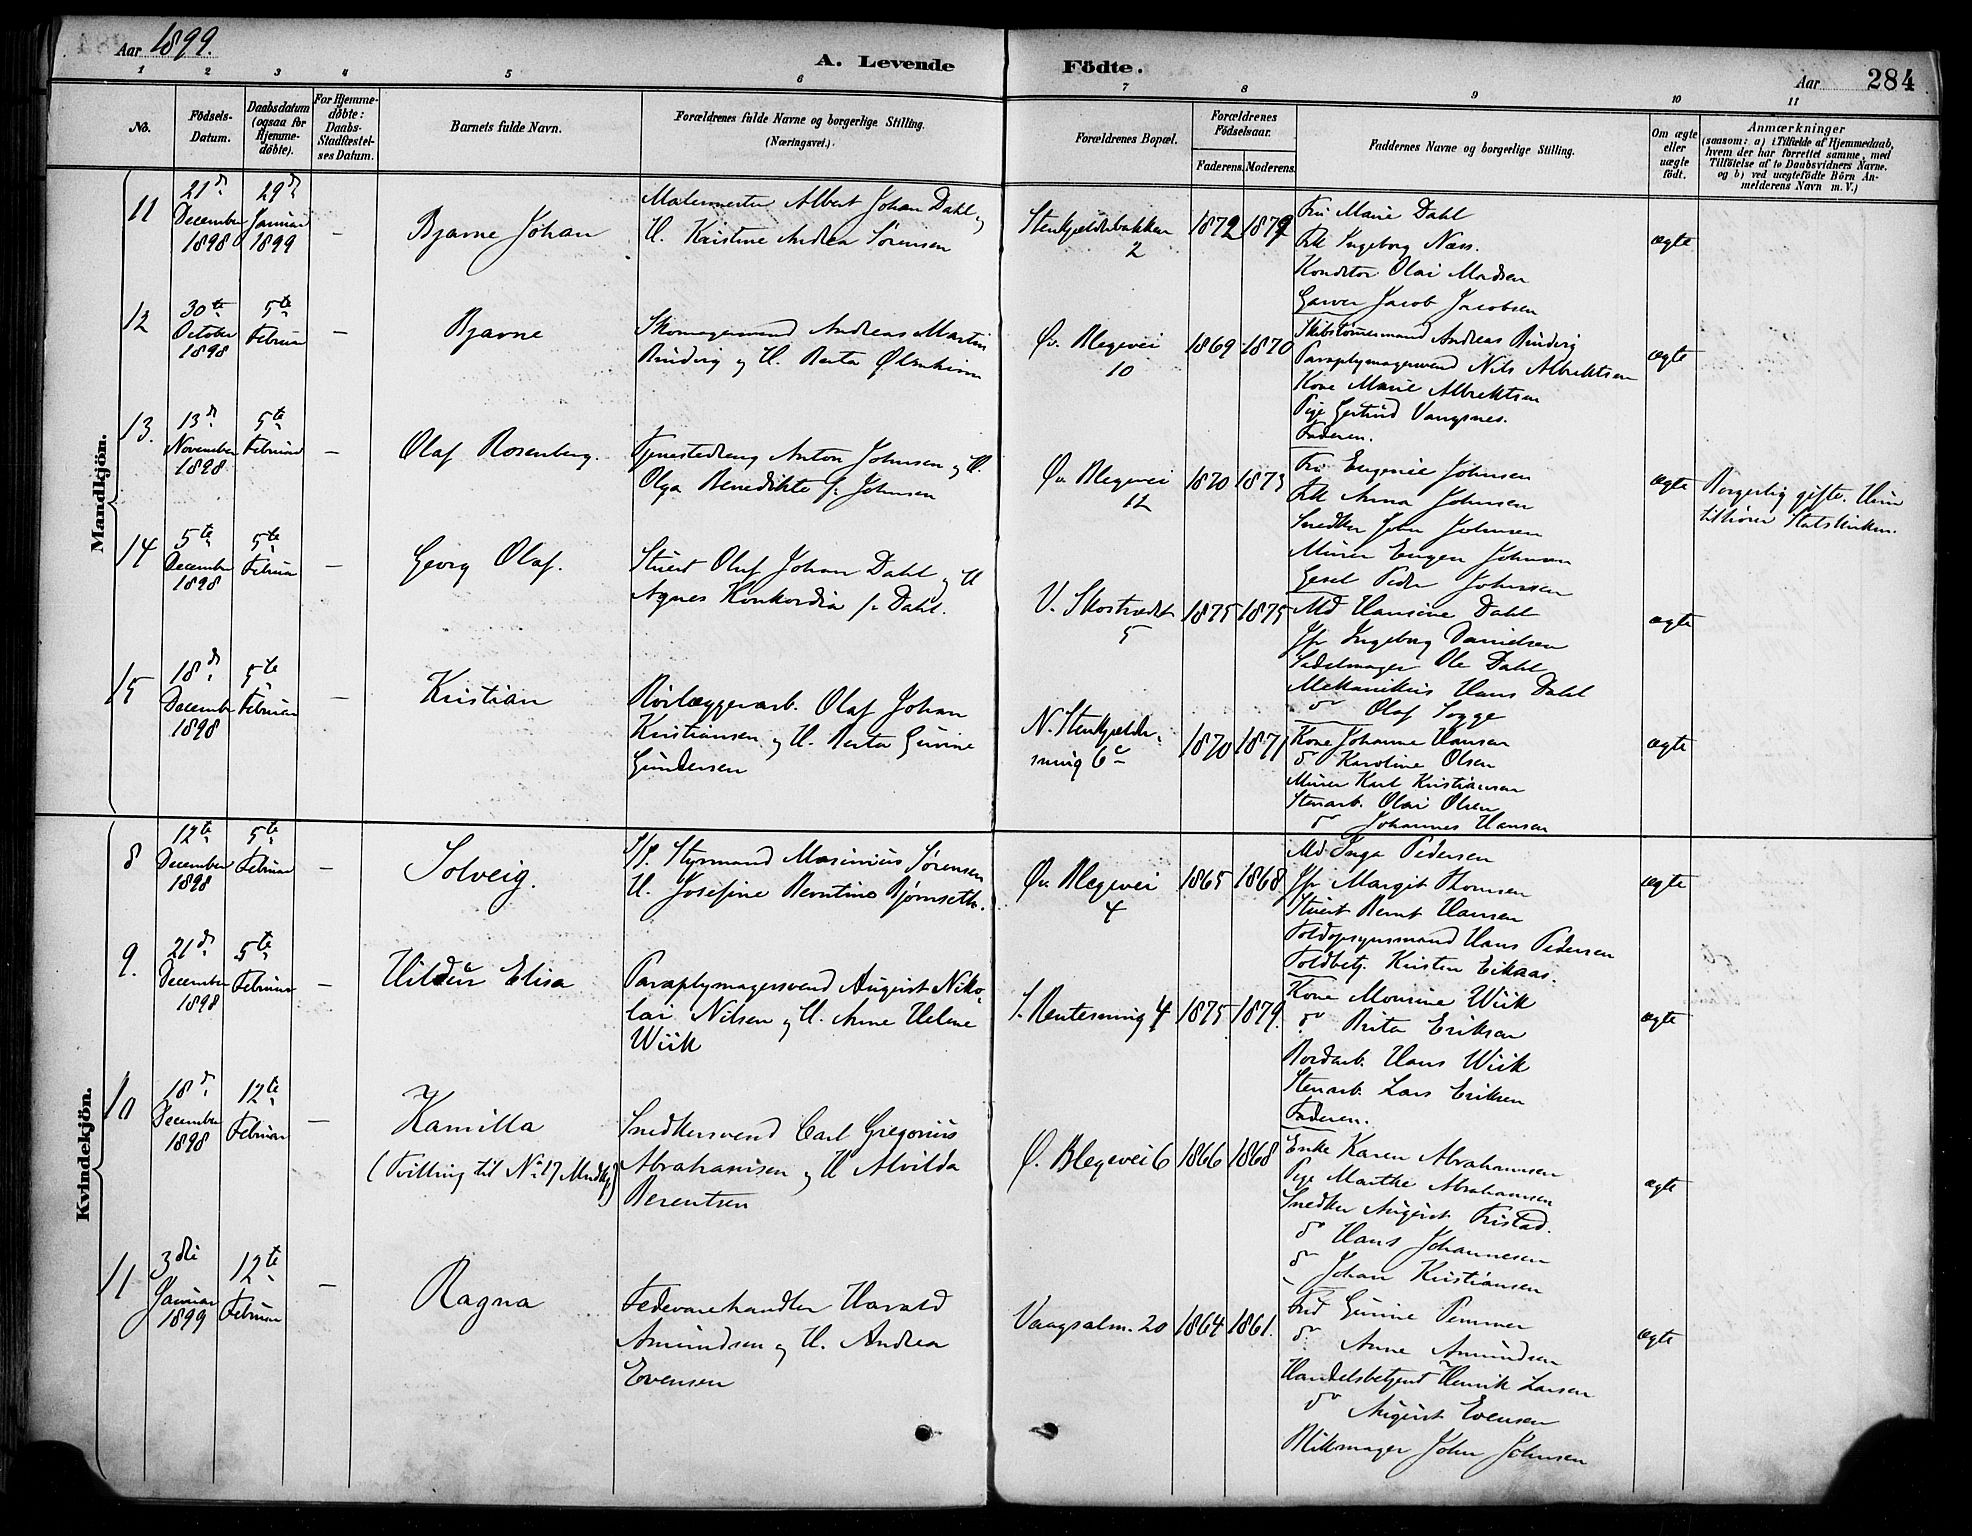 Aar 1899.
A. Levende Födte.
Aar 284
1 2 3 4 5 6 7 8 9 10 11
No.
Födsels-Datum.
Daabsdatum (ogsaa for Hjemme-döbte).
For Hjemme-döbte: Daabs-Stadfæstel-ses Datum.
Barnets fulde Navn.
Forældrenes fulde Navne og borgerlige Stilling.
(Næringsvei.)
Forældrenes Bopæl.
Forældrenes Födselsaar.
Faderens. Moderens.
Faddernes Navne og borgerlige Stilling.
Om ægte eller uægte födt.
Anmærkninger
(saasom: a) i Tilfælde af Hjemmedaab,
hvem der har forrettet samme, med
Tilföielse af to Daabsvidners Navne.
og b) ved uægtefödte Börn An-
melderens Navn m. V.)
Mandkjön.
11
21d December 1898
29d Januar 1899
–
Bjarne Johan
Malermester Albert Johan Dahl og
H. Kristine Andrea Sørensen
Stenkjelderbakken
2
1872
Fru Marie Dahl
Frk Ingeborg Næss.
Konditor Olai Madsen
Garver Jacob Jacobsen
ægte
12
30te October 1898
5te Februar
–
Bjarne
Skomagersvend Andreas Martin
og H. Berta
Øv. Blegevei
10
1869 1870
Skibstømmermand Andreas
Paraplymagersvend Nils Albrektsen
Kone Marie Albrektsen
Pige Gertrud Vangsnes.
Faderen.
ægte
13.
13d November 1898
5te Februar
–
Olaf Rosenberg.
Tjenestedreng Anton Johnsen og H.
Olga Benedikte f. Johnsen
Øv. Blegevei
12
1870 1873
Fru Eugenie Johnsen
Frk Anna Johnsen
Snedker John Johnsen
Murer Eugen Johnsen
Gesel Peder Johnsen
ægte
Borgerlig gifte. Hun
tilhører Statskirken.
14
5te December 1898
5te Februar
–
Georg Olaf.
Stuert Oluf Johan Dahl og H
Agnes Konkordia f. Dahl.
V. Skostrædet
5
1875 1875
Md Hansine Dahl
Jfr Ingeborg Danielsen
Sadelmager Ole Dahl
Mekanikus Hans Dahl
do Olaf Sogge
ægte
15
18d December 1898
5te Februar
–
Kristian
Rørlæggerarb. Olaf Johan
Kristiansen og H. Berta Gurine
Gundersen
N. Stenkjelder-
smug 6c
1870 1871
Kone Johanne Hansen
do Karoline Olsen
Murer Karl Kristiansen
Stenarb. Olai Olsen
do Johannes Hansen
ægte
Kvindekjön.
8
12te December 1898
5te Februar
–
Solveig.
Styrmand Maximius Sørensen
H. Josefine Berntine Bjørnseth.
Øv. Blegevei
4
1865 1868
Md Inga Pedersen
Jfr Margit Thomsen
Stuert Bernt Hansen
Toldopsynsmand Hans Pedersen
Toldbetj. Kristen Eikaas.
ægte
9.
21d December 1898
5te Februar
–
Hildur Elisa
Paraplymagersvend August Niko-
lai Nilsen og H. Anne Helene
Wiik
S. Rentesmug 4
1875 1879.
Kone Monsine Wiik
do Brita Eriksen
Bordarb. Hans Wiik
Stenarb. Lars Eriksen
Faderen.
ægte
10
18d December 1898
12te Februar
–
Kamilla
(Tvilling til No 17 Mandkj)
Snedkersvend Carl Gregorius
Abrahamsen og H Alvilda
Berentsen
Ø. Blegevei 6
1866 1868
Enke Karen Abrahamsen
Pige Marthe Abrahamsen
Snedker August Fristad.
do Hans Johannesen
do Johan Kristiansen
ægte
11
3die Januar 1899
12te Februar
–
Ragna
Fedevarehandler Harald
Amundsen og H. Andrea
Evensen
Vaagsalm. 20
1864 1861.
Fru Gurine Pemmer
do Anne Amundsen
Handelsbetjent Henrik Larsen
do August Evensen
Blikmager John Johnsen
ægte